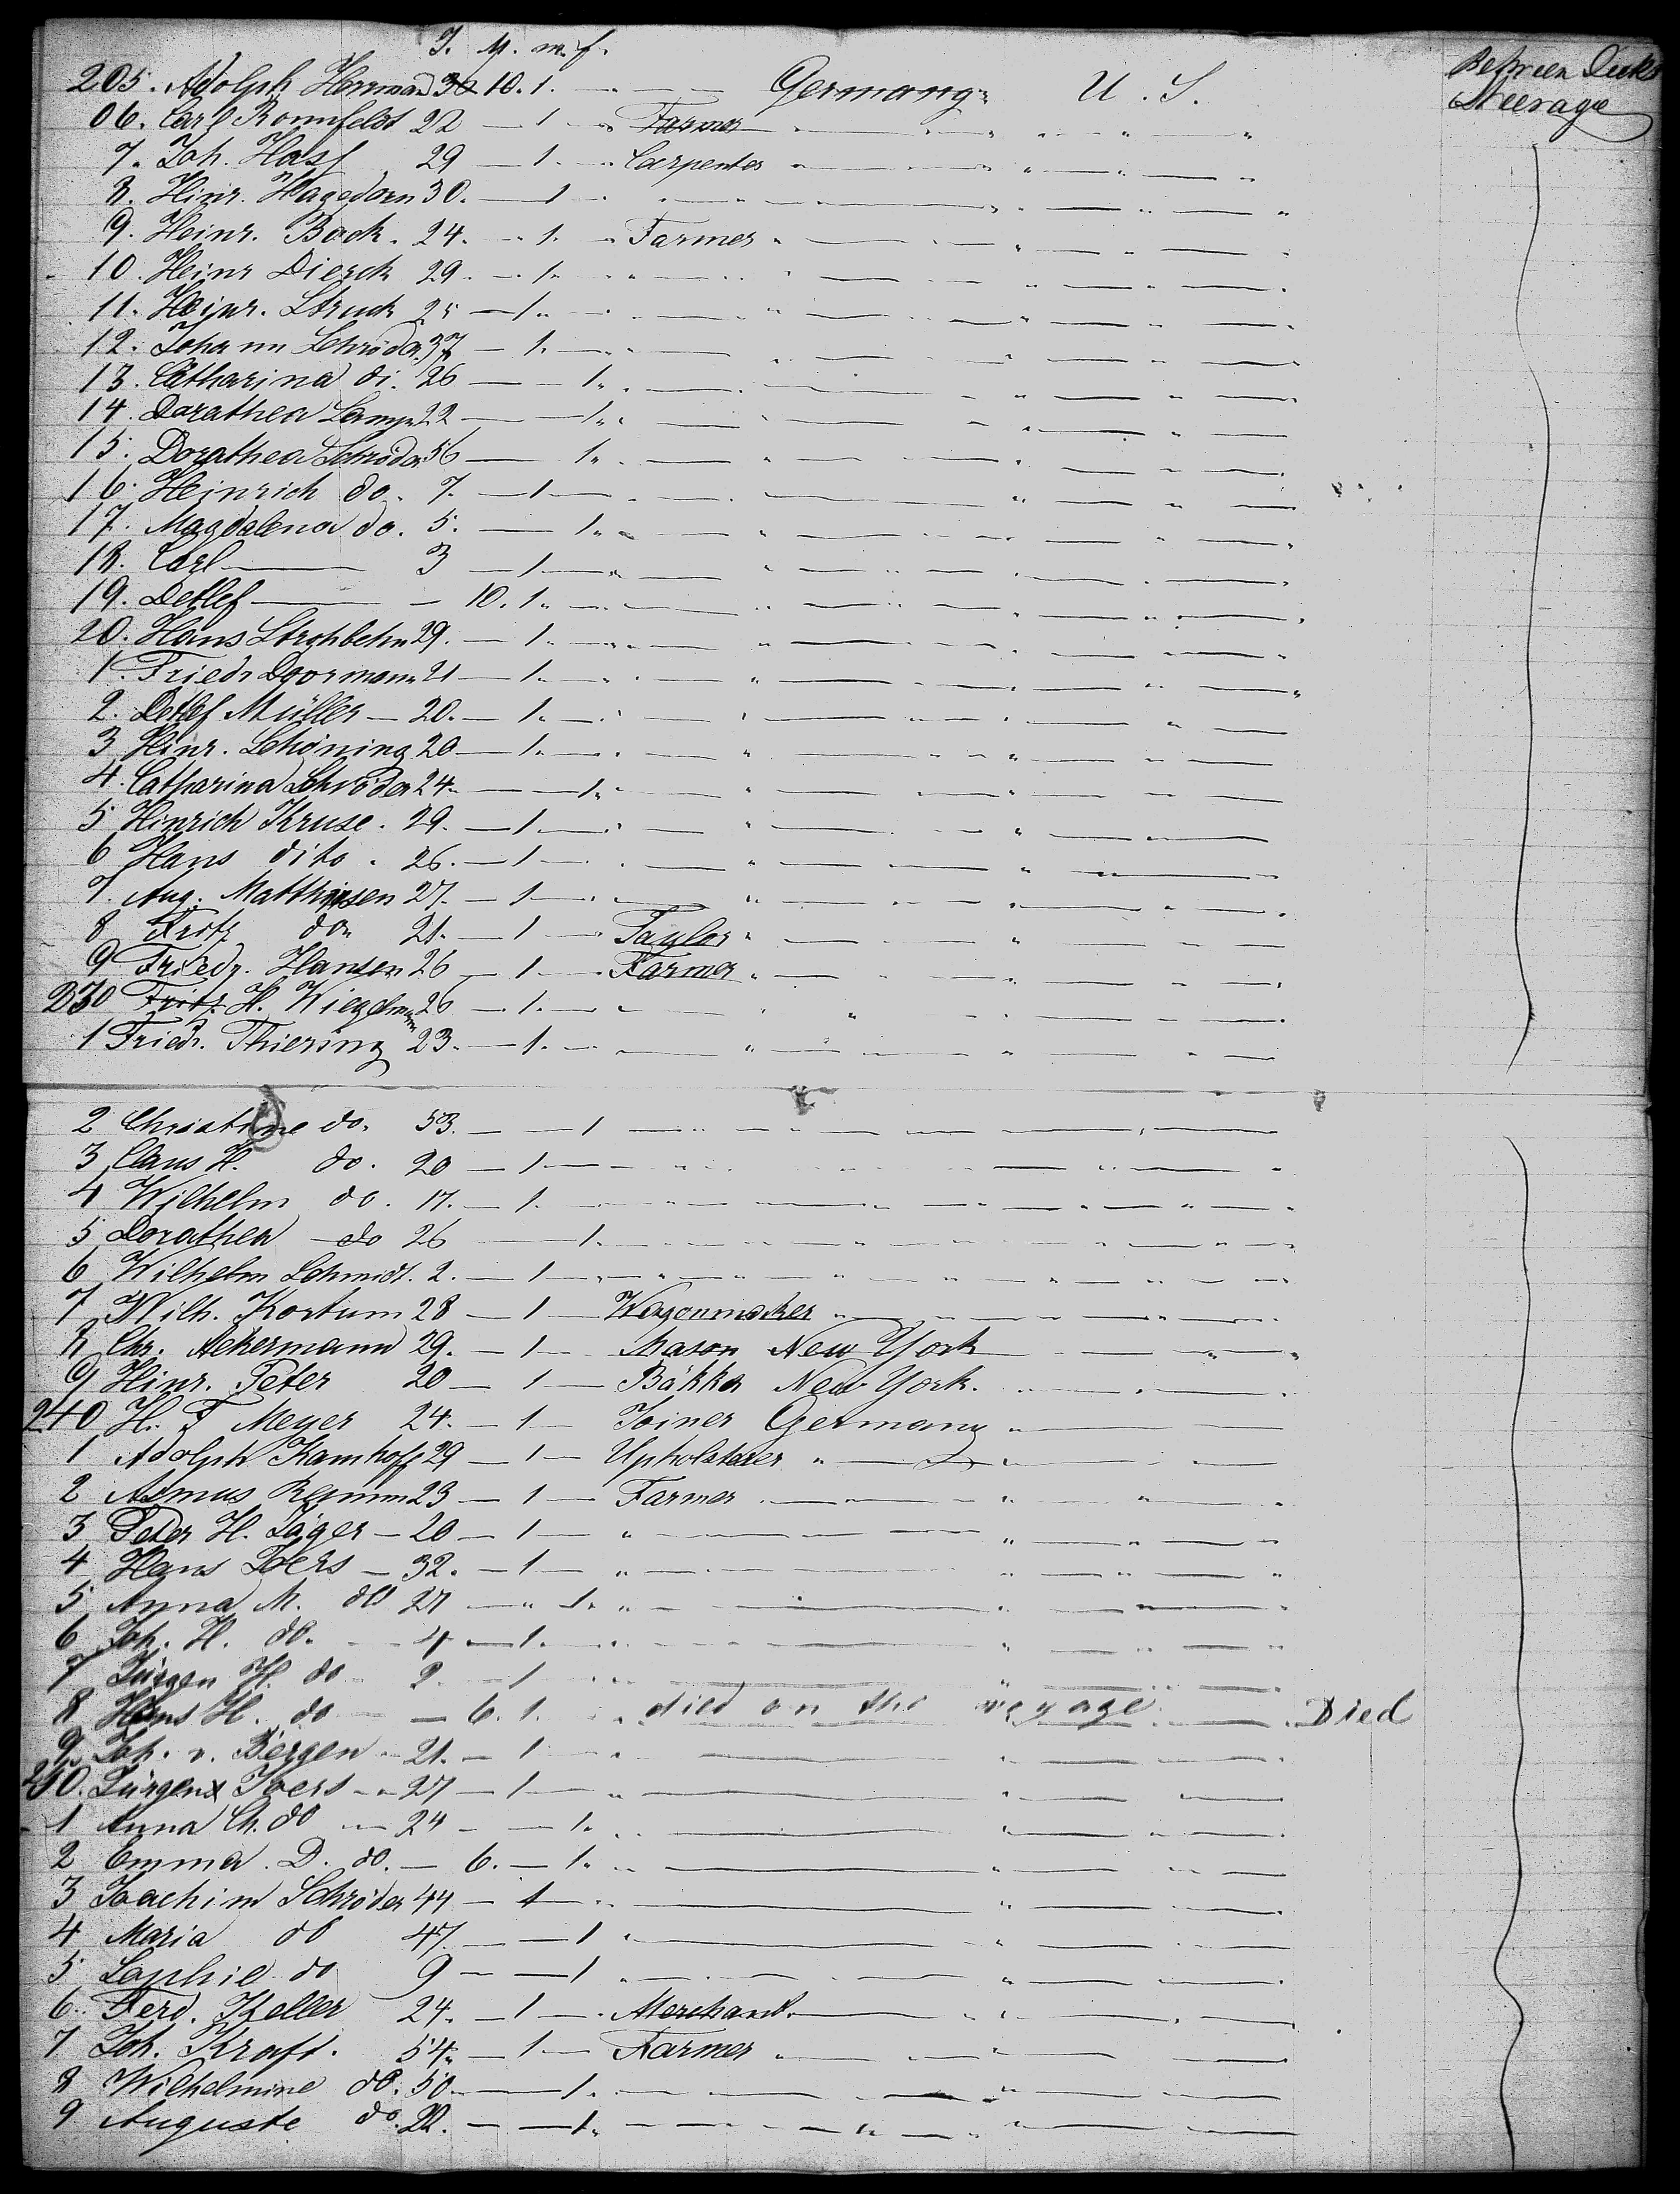 J. M. m. f.
Between Decks
Steerage
205. Adolph Herman 10. 1. Germany U. S.
06. Carl Ronnfeldt 22 — 1 Farmer
7. Joh. Hass 29 — 1 Carpenter
8. Hinr. Hagedorn 30. — 1
9. Heinr. Bock. 24. 1. Farmer
10. Heinr Dierck 29. 1
11. Heinr. Struck 25 — 1
12. Johann Schröder 37 — 1.
13. Catharina di. 26 — 1
14. Dorathea 22 — 1
15. Dorathea Schröder 56 — 1
16. Heinrich do. 7. — 1
17. Magdalena do. 5. — 1
18. Carl — 3 — 1
19. Detlef — — 10. 1
20. Hans Strohbehn 29. — 1.
1. Friedr Doormann 21 — 1.
2. Detlef Müller — 20. — 1.
3 Hinr. Schöning 20 — 1.
4. Catharina Schröder 24. — 1
5 Hinrich Kruse. 29. — 1
6 Hans dito. 26. — 1
7. Aug. Matthiesen 27. — 1
8 Fritz do 21. — 1 — Taylor
9 Friedr. Hansen 26 — 1 — Farmer
230 Fritz H. Wiegelmann 26 — 1.
1 Friedr. Thiering 23. — 1.
2 Christine do. 53. — 1
3 Claus H. do. 20 — 1
4 Wilhelm do. 17. — 1.
5 Dorathea do 26 — 1
6 Wilhelm Schmidt. 2. — 1
7 Wilh. Kortum 28 — 1 Wagonmacker
8 Chr. Ackermann 29. — 1 — Mason New York
9 Hinr. Peter 20 — 1 — Bäkker New York.
240 H. F Meyer 24. — 1 — Joiner Germany
1 Adolph Kamhoff 29 — 1 — Upholsterer
2 Asmus 23 — 1 — Farmer
3 Peter H. Jäger — 20 — 1
4 Hans Joers — 32. — 1
5 Anna M. do 27 — 1
6 Joh. H. do. 4 — 1.
7 Jürgen H. do 2 — 1
8 Hans H. do — 6. 1. died on the voyage Died
9. Joh. v. Bergen 21. — 1
250. Jürgen Joers 27 — 1
1 Anna Ch. do 24 — 1
2 Emma. D. do. — 6. — 1
3 Joachim Schröder 44 — 1
4 Maria do 47. — 1
5 Sophie do 9 — 1
6. Ferd. Keller 24. — 1 — Merchant.
7 Joh. Kraft. 54. — 1 — Farmer
8 Wilhelmine do. 50. — 1.
9 Auguste do. 22. — 1